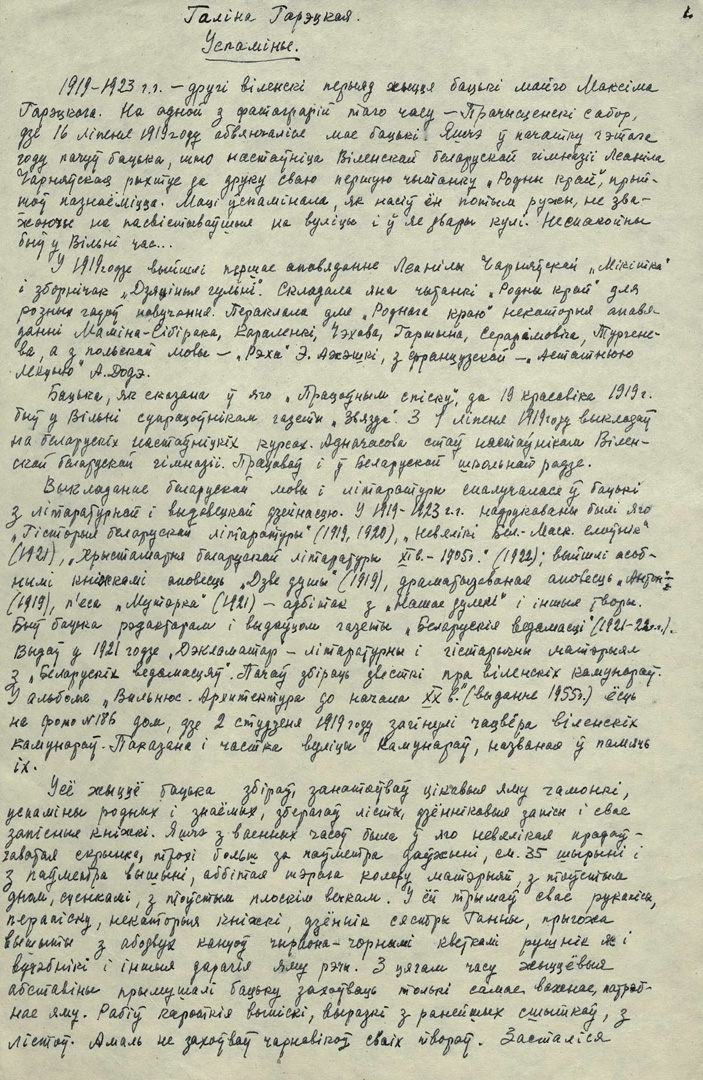 1.
Галіна Гарэцкая.
Успаміны.
1919-1923 г.г. – другі віленскі перыяд жыцця бацькі майго Максіма
Гарэцкага. На адной з фатаграфій таго часу – Прачысценскі сабор,
дзе 16 ліпеня 1919 году абвянчаліся мае бацькі. Яшчэ ў пачатку гэтага
году пачуў бацька, што настаўніца Віленскай беларускай гімназіі Леаніла
Чарняўская рыхтуе да друку сваю першую чытанку „Родны край", прый-
шоў пазнаёміцца. Маці ўспамінала, як насіў ён потым ружы, не зва-
жаючы на пасвістваўшыя на вуліцы і ў яе двары кулі. Неспакойны
быў у Вільні час...
У 1919 годзе выйшлі першае апавяданне Леанілы Чарняўскай „Мікітка"
і зборнічак „Дзяціныя гульні". Складала яна чытанкі „Родны край" для
розных гадоў навучання. Пераклала для „Роднага краю" некаторыя апавя-
данні Маміна-Сібірака, Караленкі, Чэхава, Гаршына, Серафімовіча, Тургене-
ва, а з польскай мовы – „Рэха" Э. Ажэшкі, з французскай – „Астатнюю
лекцыю" А. Додэ.
Бацька, як сказана ў яго „Працоўным спіску", да 19 красавіка 1919 г.
быў у Вільні супрацоўнікам газеты „Звязда". З 1 ліпеня 1919 году выкладаў
на беларускіх настаўніцкіх курсах. Адначасова стаў настаўнікам Вілен-
скай беларускай гімназіі. Працаваў і ў Беларускай школьнай радзе.
Выкладанне беларускай мовы і літаратуры спалучалася ў бацькі
з літаратурнай і выдавецкай дзейнасцю. У 1919-1923 г.г. надрукаваны былі яго
„Гісторыя беларускай літаратуры" (1919, 1920), „Невялікі Бел.-Маск. слоўнік"
(1921), „Хрыстаматыя беларускай літаратуры XI в. – 1905 г." (1922); выйшлі асоб-
нымі кніжкамі аповесць „Дзве душы" (1919), драматызаваная аповесць „Антон"
(1919), п'еса „Мутэрка" (1921) – адбітак з „Нашае думкі" і іншыя творы.
Быў бацька рэдактарам і выдаўцом газеты „Беларускія ведамасці" (1921-22 г.г.).
Выдаў у 1921 годзе „Дэкламатар – літаратурны і гістарычны матэрыял
з „Беларускіх ведамасцяў". Пачаў збіраць звесткі пра віленскіх камунараў.
У альбоме „Вильнюс. Архитектура до начала XX в." (выданне 1955 г.) ёсць
на фото №186 дом, дзе 2 студзеня 1919 году загінулі чацвёра віленскіх
камунараў. Паказана і частка вуліцы Камунараў, названая ў памяць
іх.
Усё жыццё бацька збіраў, занатоўваў цікавыя яму гамонкі,
успаміны родных і знаёмых, зберагаў лісты, дзённікавыя запісы і свае
запісныя кніжкі. Яшчэ з ваенных часоў была ў яго невялікая прадаў-
гаватая скрынка, трохі больш за паўметра даўжыні, см. 35 шырыні і
з паўметра вышыні, аббітая шэрага колеру матэрыяй, з тоўстым
дном, сценкамі, з тоўстым плоскім векам. У ёй трымаў свае рукапісы,
перапіску, некаторыя кніжкі, дзённік сястры Ганны, прыгожа
вышыты з абодвух канцоў чырвона-чорнымі кветкамі ручнік яе і
вучэбнікі і іншыя дарагія яму рэчы. З цягам часу жыццёвыя
абставіны прымушалі бацьку захоўваць толькі самае важнае, патрэб-
нае яму. Рабіў кароткія выпіскі, выразкі з ранейшых сшыткаў, з
лістоў. Амаль не захоўваў чарнавікоў сваіх твораў. Засталіся